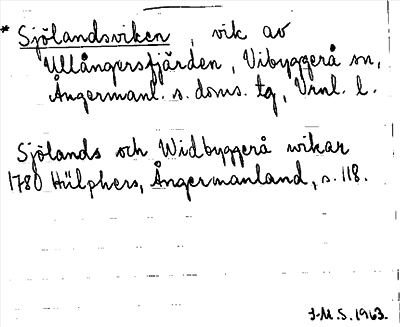 * Sjölandsviken, vik av
Ullångersfjärden, Vibyggerå sn,
Ångermanl. s. doms. tg, Vrnl. l.
Sjölands och Widbyggerå wikar
1780 Hülphers, Ångermanland, s. 118.
J-M.S. 1963.